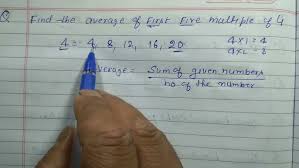 Q Find the average of First Five multiple of 4
4 = 4, 8, 12, 16, 20 4×1=4
4×2=8
average = Sum of given numbers
no of the number